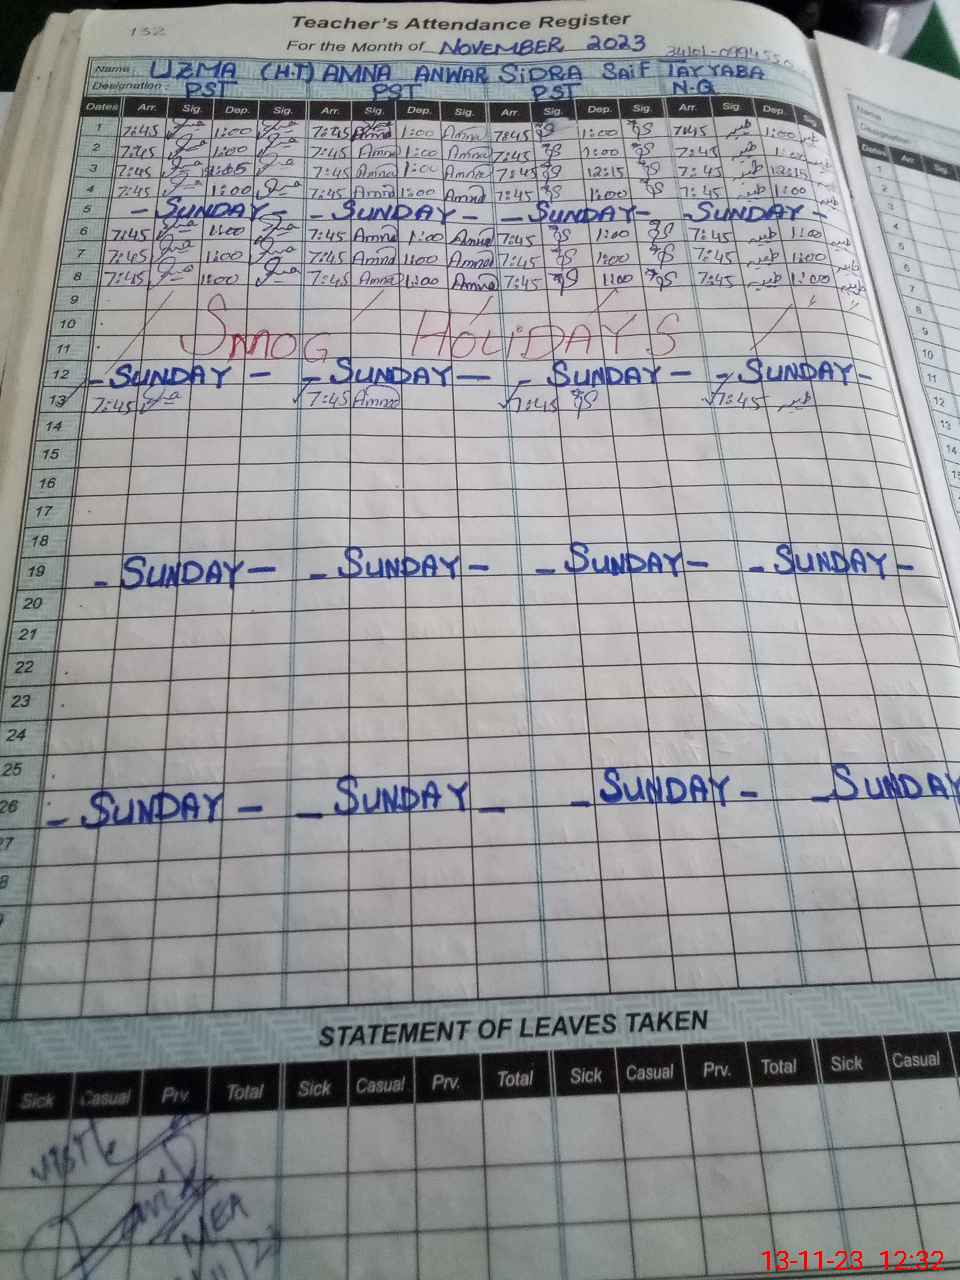 132
Teacher's Attendance Register
For the Month of NOVEMBER 2023
Name UZMA (H.T) AMNA ANWAR SIDRA SAIF TAYYABA
Designation: PST PST PST N.Q
Dates Arr. Sig. Dep. Sig. Arr. Sig. Dep. Sig. Arr. Sig. Dep. Sig. Arr. Sig. Dep. Sig.
1 7:45 1:00 7:45 Amna 1:00 Amna 7:45 1:00 7:45 1:00
2 7:45 1:00 7:45 Amna 1:00 Amna 7:45 1:00 7:45 1:00
3 7:45 7:45 Amna 1:00 Amna 7:45 12:15 7:45 12:15
4 7:45 1:00 7:45 Amna 1:00 Amna 7:45 1:00 7:45 1:00
5 - SUNDAY - - SUNDAY - - SUNDAY - - SUNDAY -
6 7:45 1:00 7:45 Amna 1:00 Amna 7:45 1:00 7:45 1:00
7 7:45 1:00 7:45 Amna 1:00 Amna 7:45 1:00 7:45 1:00
8 7:45 1:00 7:45 Amna 1:00 Amna 7:45 1:00 7:45 1:00
9
10 SMOG HOLIDAYS
11
12 - SUNDAY - - SUNDAY - - SUNDAY - - SUNDAY -
13 7:45 7:45 Amna 7:45 7:45
14
15
16
17
18
19 - SUNDAY - - SUNDAY - - SUNDAY - - SUNDAY -
20
21
22
23
24
25
26 - SUNDAY - - SUNDAY - - SUNDAY - - SUNDAY
STATEMENT OF LEAVES TAKEN
Sick Casual Prv. Total Sick Casual Prv. Total Sick Casual Prv. Total Sick Casual
MEA
13-11-23 12:32